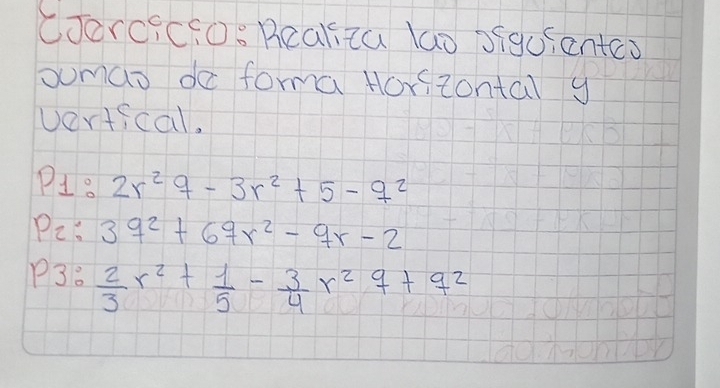 Ejercicio: Realiza las siguientes
sumas de forma Horizontal y
vertical.
P1: 2r²q - 3r² + 5 - q²
P2: 3q² + 6qr² - qr - 2
P3: 2/3 r² + 1/5 - 3/4 r² q + q²